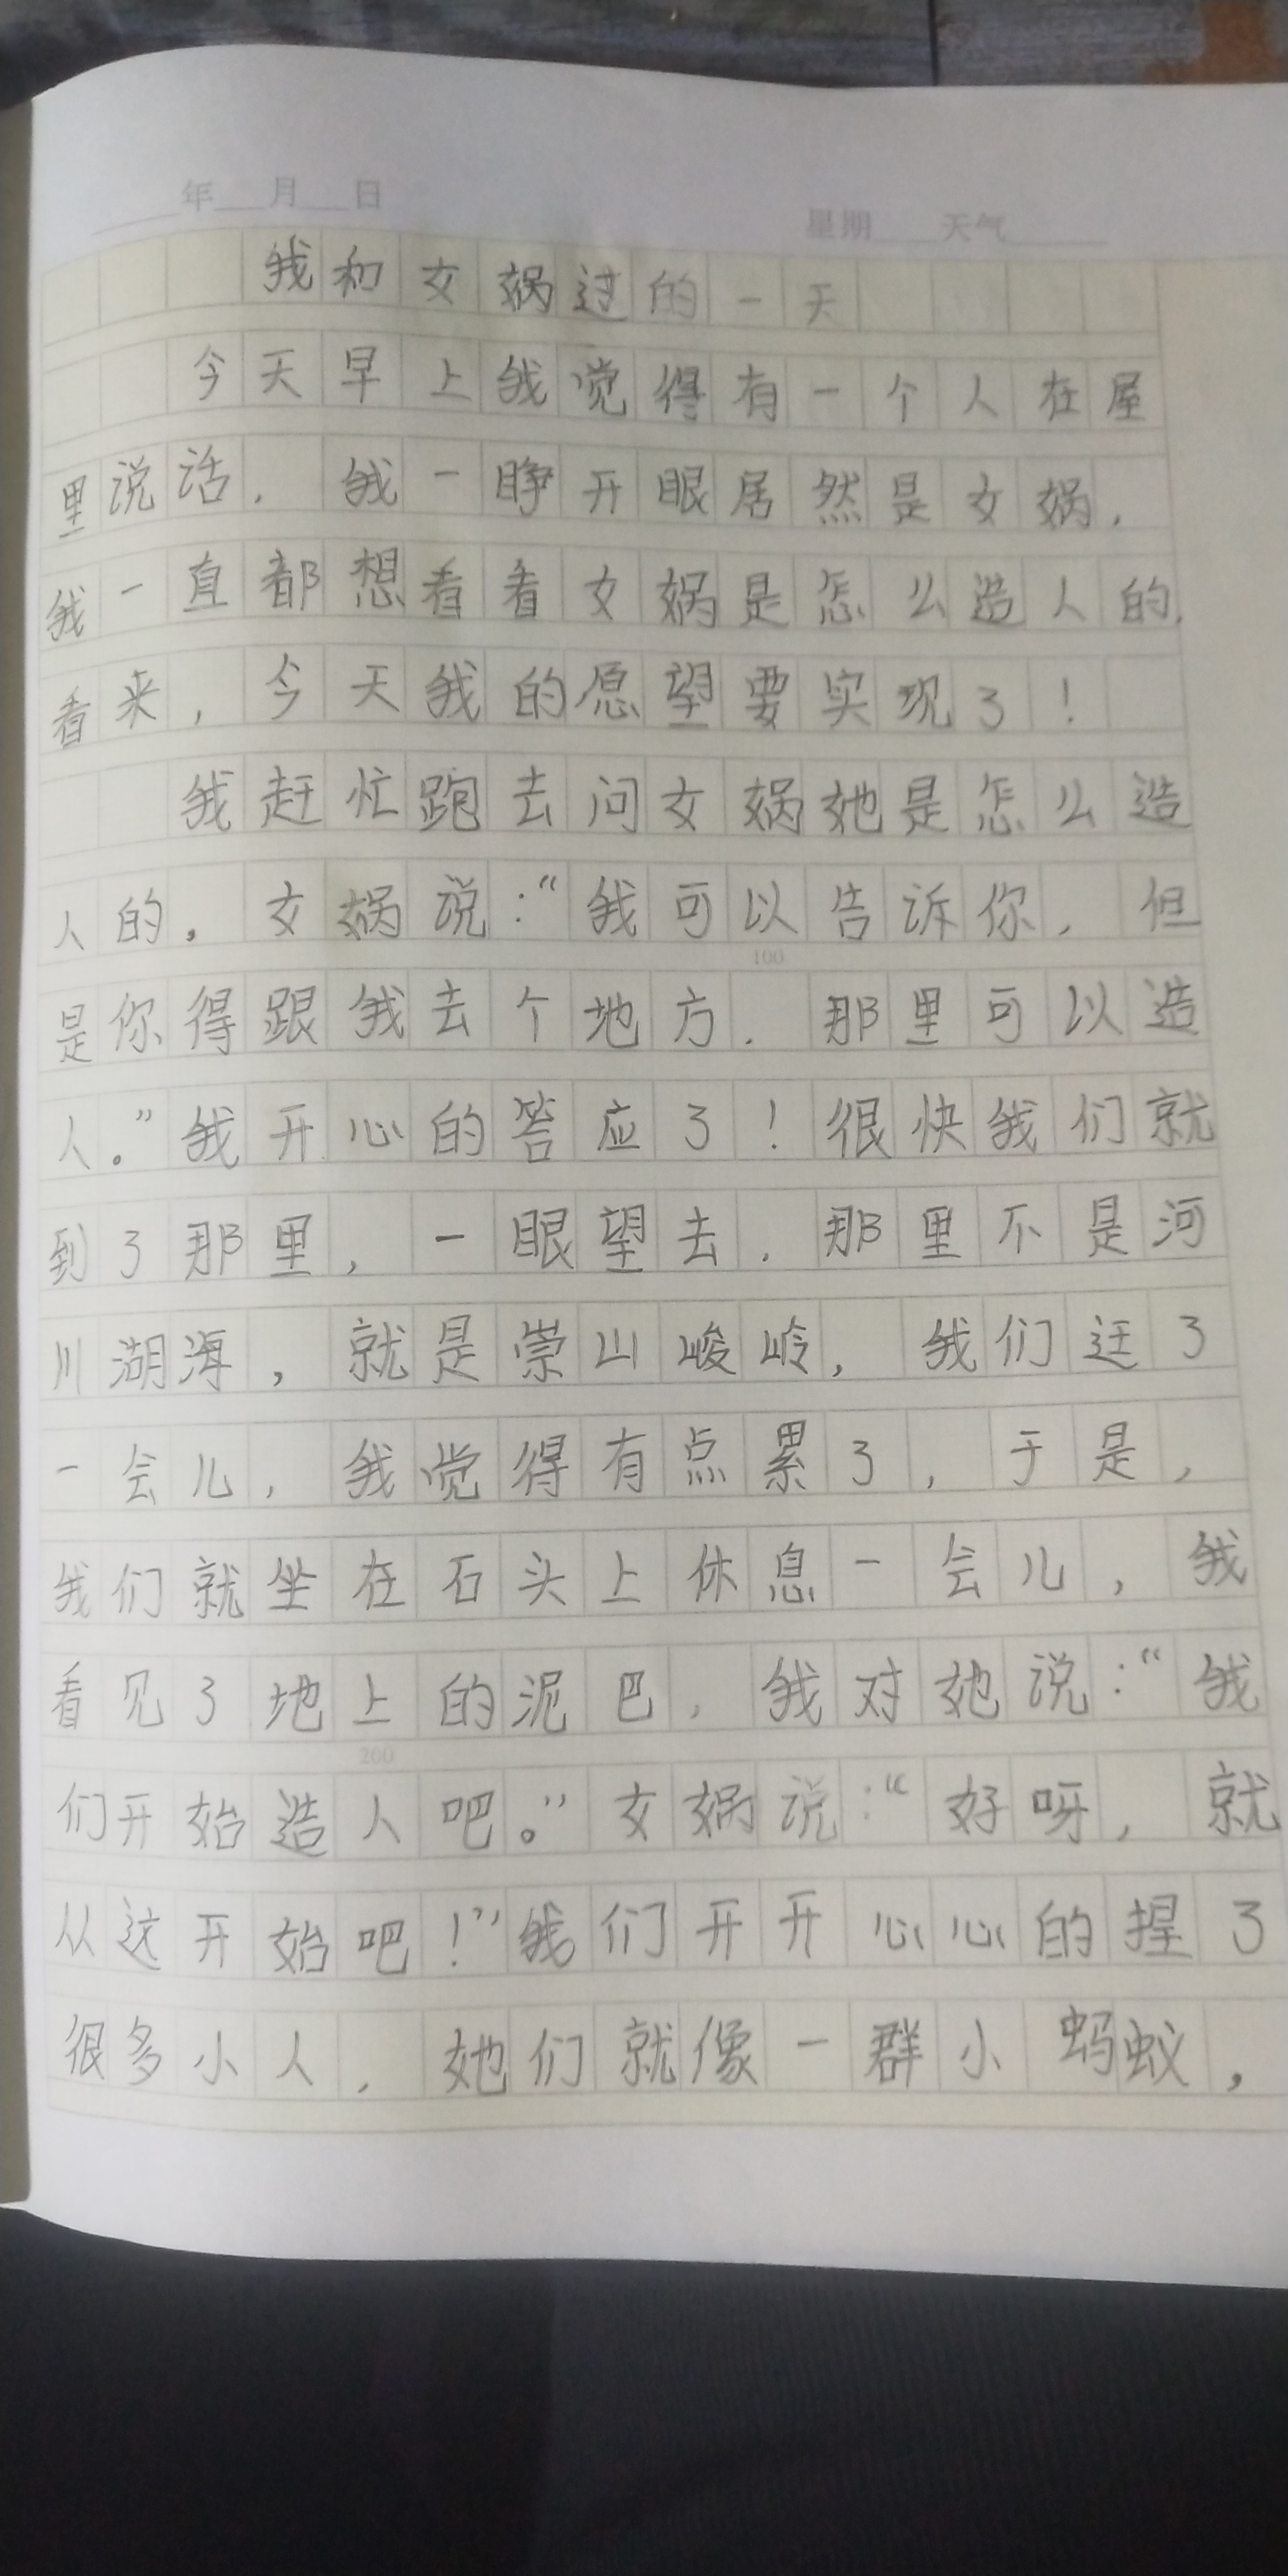 年 月 日
星期 天气
我和女娲过的一天
今天早上我觉得有一个人在屋
里说话，我一睁开眼居然是女娲，
我一直都想看看女娲是怎么造人的，
看来，今天我的愿望要实现了！
我赶忙跑去问女娲她是怎么造
人的。女娲说：“我可以告诉你，但
100
是你得跟我去个地方，那里可以造
人。”我开心的答应了！很快我们就
到了那里，一眼望去，那里不是河
川湖海，就是崇山峻岭，我们迋了
一会儿，我觉得有点累了，于是，
我们就坐在石头上休息一会儿，我
看见了地上的泥巴，我对她说：“我
200
们开始造人吧。”女娲说：“好呀，就
从这开始吧！”我们开开心心的捏了
很多小人，她们就像一群小蚂蚁，